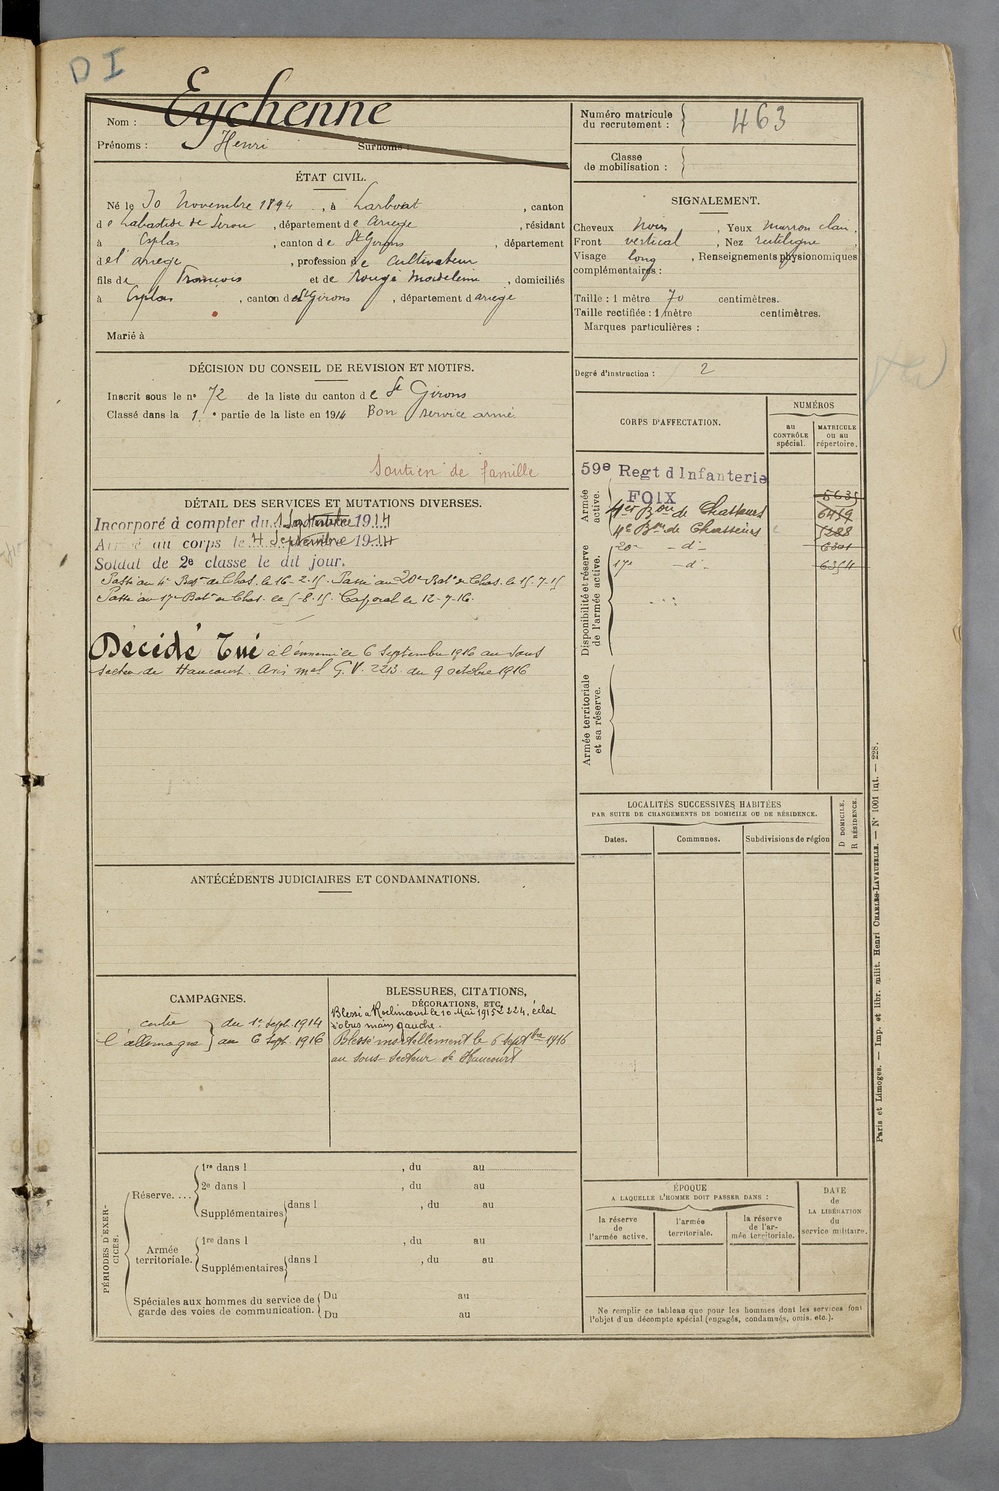 D I
Nom : Eychenne
Prénoms : Henri Surnoms :
Numéro matricule
du recrutement : 463
Classe
de mobilisation :
ÉTAT CIVIL.
Né le 30 Novembre 1894, à Larbont, canton
de Labastide de Serou, département de Ariege, résidant
à Esplas, canton de St Girons, département
de l'ariege, profession de Cultivateur
fils de François et de Rougé Madeleine, domiciliés
à Esplas, canton de St Girons, département d'ariege
Marié à
SIGNALEMENT.
Cheveux Noirs, Yeux Marron clair.
Front vertical, Nez rectiligne
Visage long, Renseignements physionomiques
complémentaires :
Taille : 1 mètre 70 centimètres.
Taille rectifiée : 1 mètre centimètres.
Marques particulières :
Degré d'instruction : 2
DÉCISION DU CONSEIL DE REVISION ET MOTIFS.
Inscrit sous le no 72 de la liste du canton de St Girons
Classé dans la 1re partie de la liste en 1914 Bon service armé
Soutien de famille
CORPS D'AFFECTATION.
NUMÉROS
au
CONTRÔLE
spécial.
MATRICULE
ou au
répertoire.
Armée
active.
59e Regt d'Infanterie
FOIX
4e Bon de Chasseurs
20e - do -
17e - do -
6301
6354
Disponibilité et réserve
de l'armée active.
Armée territoriale
et sa réserve.
DÉTAIL DES SERVICES ET MUTATIONS DIVERSES.
Incorporé à compter du 1 Septembre 1914
Arrivé au corps le 4 Septembre 1914
Soldat de 2e classe le dit jour.
Passé au 4e Baton de Chas. le 16-2-15. Passé au 20e Baton de Chas. le 15-7-15
Passé au 17e Baton de Chas. le 5-8-15. Caporal le 12-7-16.
Décédé Tué à l'ennemi le 6 Septembre 1916 au sous
secteur de Haucourt. Avis mel G.V. 2213 du 9 octobre 1916
LOCALITÉS SUCCESSIVES HABITÉES
PAR SUITE DE CHANGEMENTS DE DOMICILE OU DE RÉSIDENCE.
Dates. Communes. Subdivisions de région
D DOMICILE.
R RÉSIDENCE.
ANTÉCÉDENTS JUDICIAIRES ET CONDAMNATIONS.
CAMPAGNES.
contre
l'allemagne
du 1er Sept. 1914
au 6 Sept. 1916
BLESSURES, CITATIONS,
DÉCORATIONS, ETC.
Blessé à Roclincourt le 10 Mai 1915 224, éclat
d'obus main gauche.
Blessé mortellement le 6 septbre 1916
au sous-secteur de Haucourt
PÉRIODES D'EXER-
CICES.
Réserve....
1re dans l , du au
2e dans l , du au
Supplémentaires dans l , du au
Armée
territoriale.
1re dans l , du au
Supplémentaires dans l , du au
Spéciales aux hommes du service de
garde des voies de communication.
Du au
Du au
ÉPOQUE
A LAQUELLE L'HOMME DOIT PASSER DANS :
la réserve
de
l'armée active.
l'armée
territoriale.
la réserve
de l'ar-
mée territoriale.
DATE
de
LA LIBÉRATION
du
service militaire.
Ne remplir ce tableau que pour les hommes dont les services font
l'objet d'un décompte spécial (engagés, condamnés, omis, etc.).
Paris et Limoges. — Imp. et libr. milit. Henri CHARLES-LAVAUZELLE. — No 1001 int. — 228.